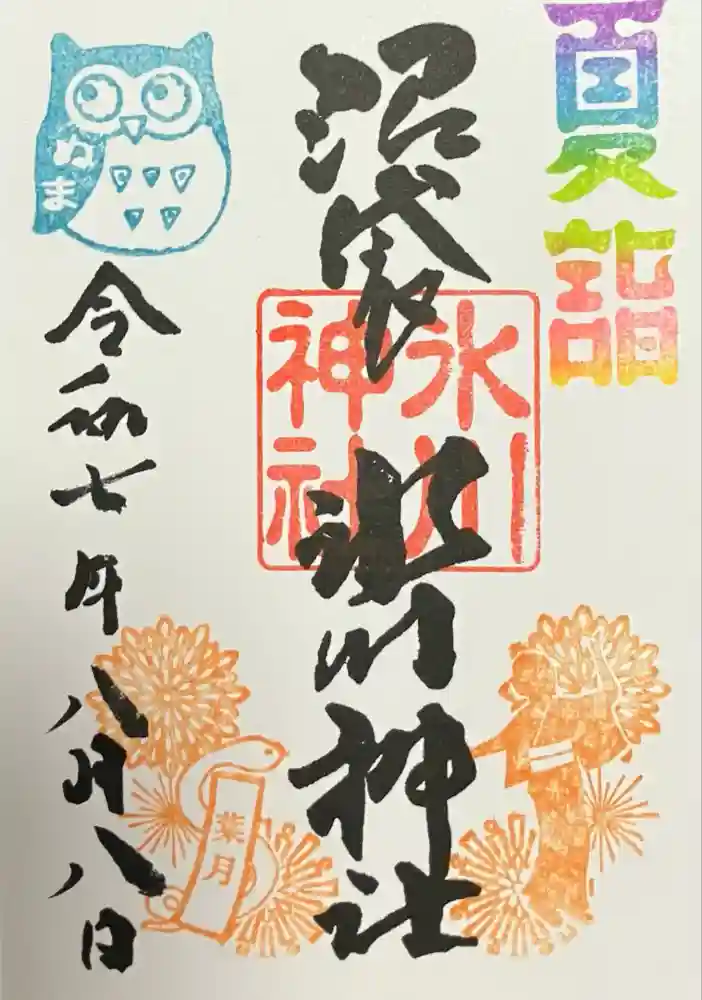 夏詣
沼袋
氷川神社
氷川
神社
ぬま
令和七年八月八日
葉月